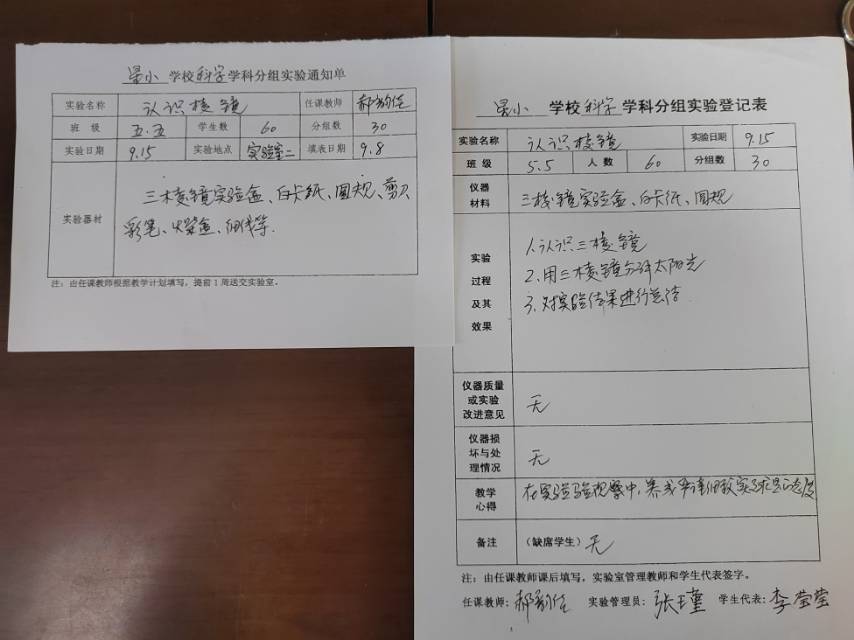 星小 学校 科学 学科分组实验通知单
实验名称 认识棱镜 任课教师
班 级 五.五 学生数 60 分组数 30
实验日期 9.15 实验地点 实验室二 填表日期 9.8
实验器材 三棱镜实验盒、白卡纸、圆规、剪刀
彩笔、火柴盒、细线等.
注:由任课教师根据教学计划填写,提前1周送交实验室。
星小 学校 科学 学科分组实验登记表
实验名称 认识棱镜 实验日期 9.15
班 级 5.5 人 数 60 分组数 30
仪器
材料
三棱镜实验盒、白卡纸、圆规
实验
过程
及其
效果
1.认识三棱镜
2.用三棱镜分解太阳光
3.对实验结果进行总结
仪器质量
或实验
改进意见
无
仪器损
坏与处
理情况
无
教学
心得
在实验观察中,养成严谨细致实事求是的态度
备注 (缺席学生) 无
注:由任课教师课后填写,实验室管理教师和学生代表签字。
任课教师: 实验管理员: 张瑾 学生代表: 李莹莹